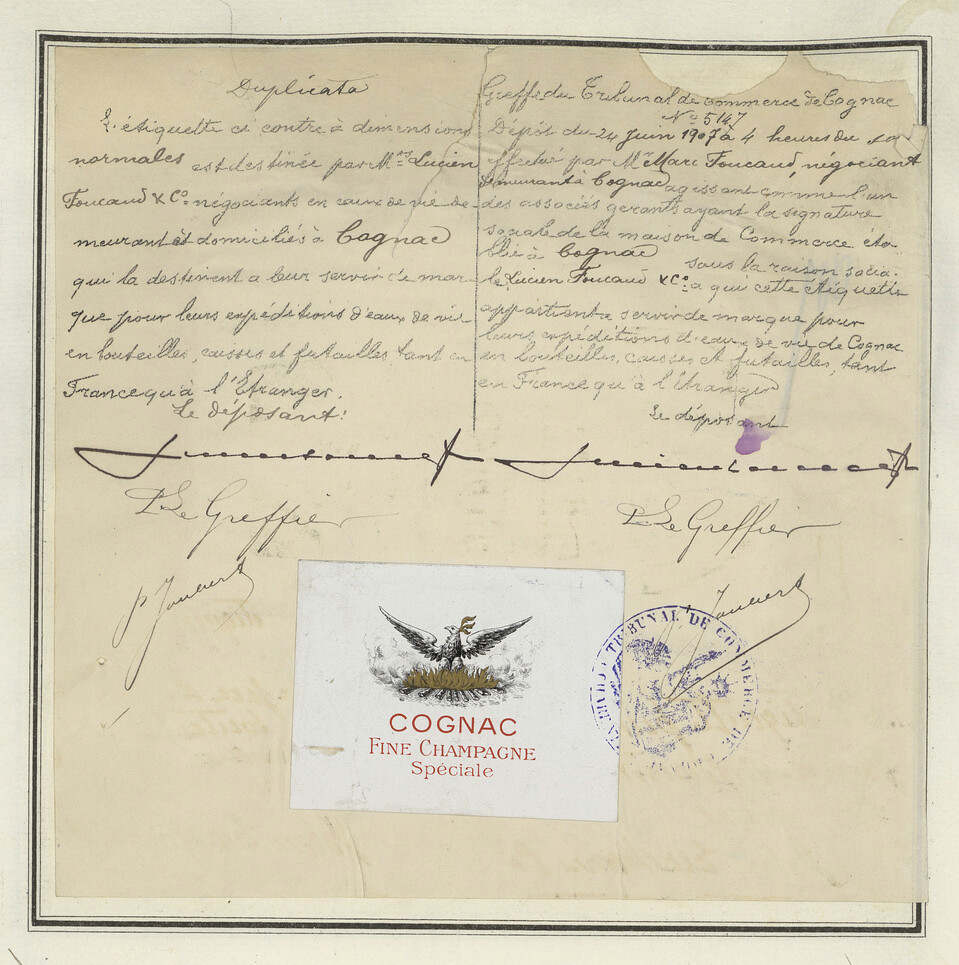 Duplicata
L'étiquette ci contre à dimensions
normales est destinée par Mrs Lucien
Foucaud & Co. négociants en eaux de vie de-
meurant et domiciliés à Cognac
qui la destinent a leur servir de mar-
que pour leurs expéditions d'eaux de vie
en bouteilles, caisses et futailles tant en
France qu'à l'Etranger.
Le déposant:
P. Le Greffier
Greffe du Tribunal de Commerce de Cognac
No 5147
Dépôt du 24 Juin 1907 à 4 heures du
effectué par Mr Marc Foucaud, négociant
demeurant à Cognac agissant comme l'un
des associés gerants ayant la signature
sociale de la maison de Commerce éta-
blie à Cognac sous la raison socia-
le Lucien Foucaud & Co. a qui cette étiquette
appartient a servir de marque pour
leurs expéditions d'eaux de vie de Cognac
en bouteilles, caisses et futailles, tant
en France qu'à l'Etranger
Le déposant
P. Le Greffier
COGNAC
FINE CHAMPAGNE
Spéciale
TRIBUNAL DE COMMERCE DE